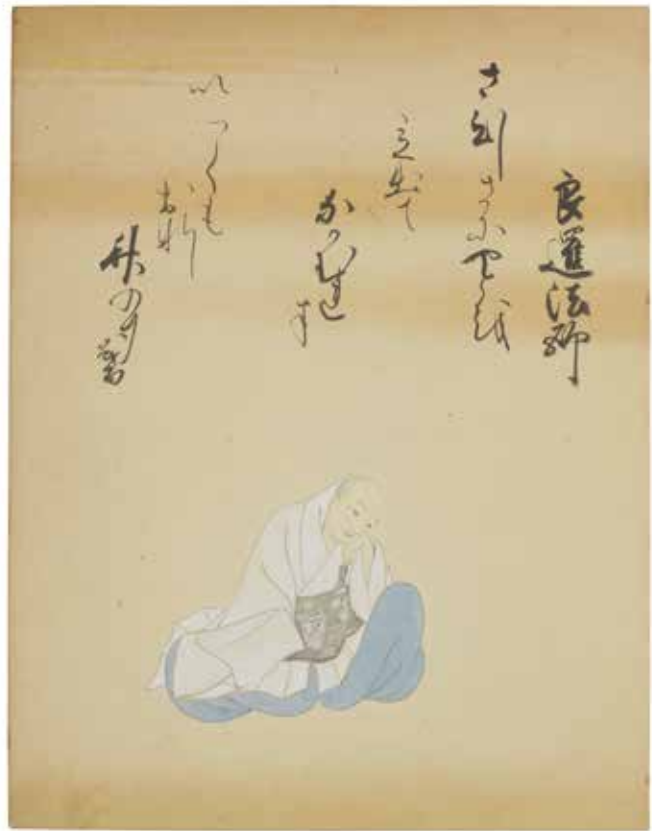 良暹法師
さひしさにやとを
立出て
なかむれは
いつくも
おなし
秋の夕暮